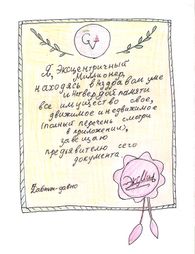 Я, Эксцентричный
Миллионер,
находясь в здравом уме
и твердой памяти
все имущество свое,
движимое и недвижимое
(полный перечень смотри
в приложении),
завещаю
предъявителю сего
документа.
ЭкцМилл